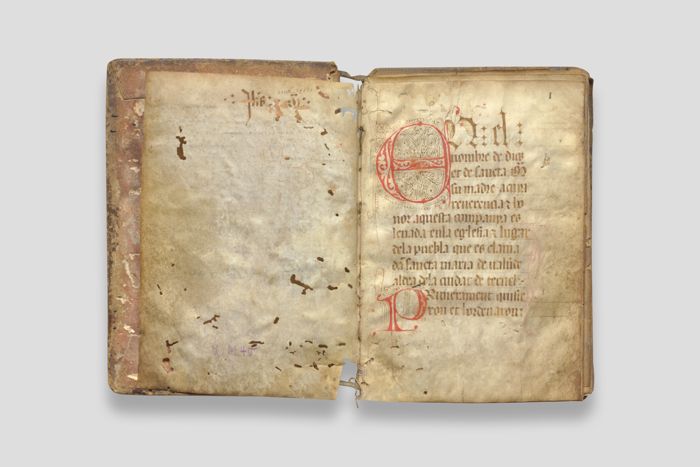 :Jhs:
1
En el:
nombre de dios
et de sancta M
su madre a cuya
reverencia & ho
nor aquesta companya es
lenada en la eglesia & lugar
de la puebla que es clama
da sancta maria de
aldea de la ciudat de teruel.
Primerament quisie
ron et hordenaron: